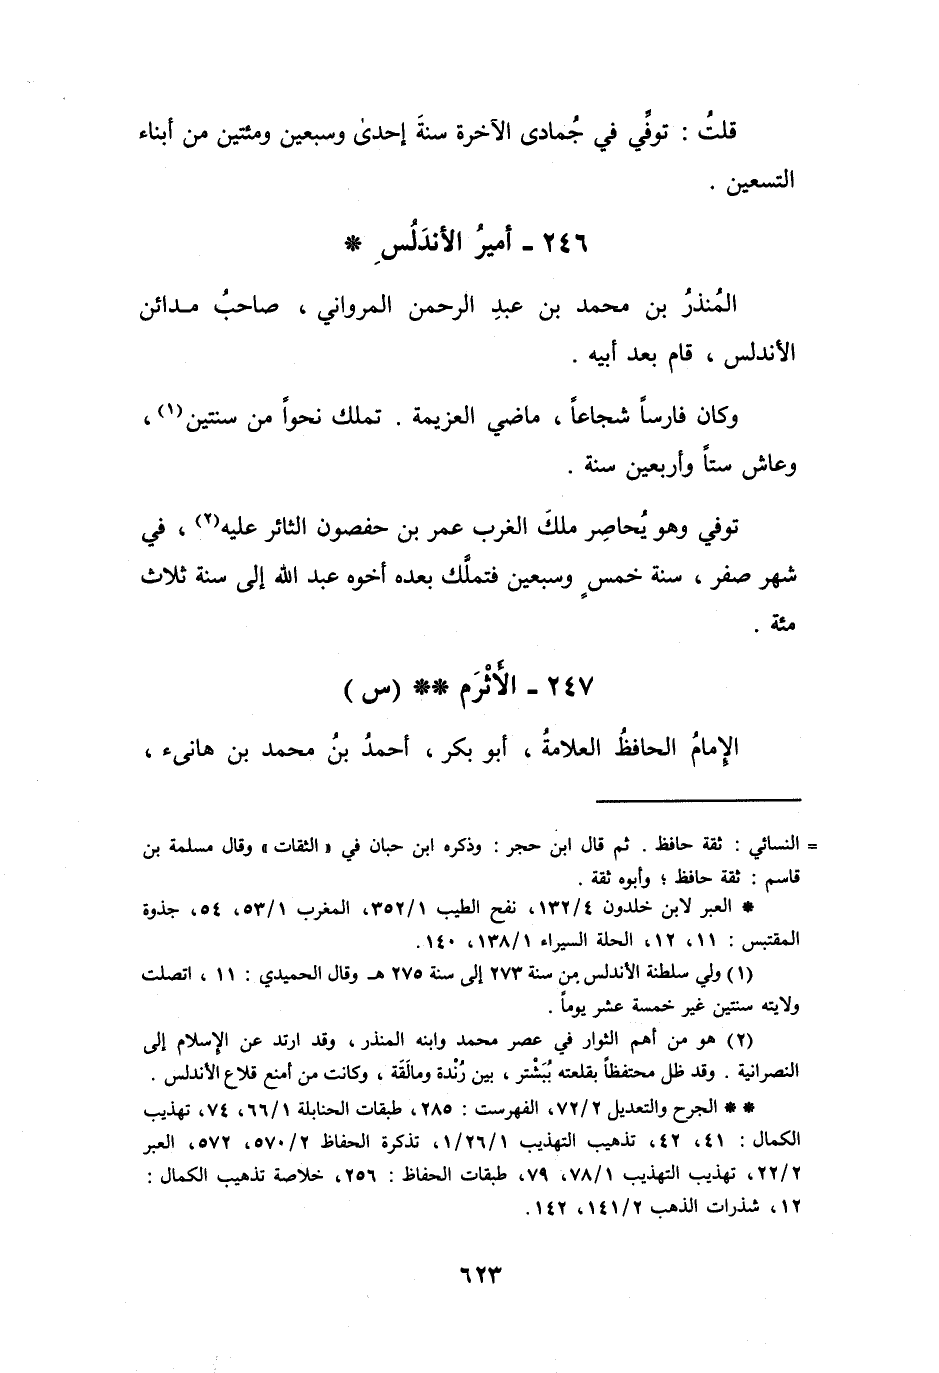 قلتُ : توفِّي في جُمادى الآخرة سنةَ إحدىٰ وسبعين ومئتين من أبناء
التسعين .
٢٤٦ - أميرُ الأندَلُسِ *
المُنذرُ بن محمد بن عبدِ الرحمن المرواني ، صاحبُ مـدائن
الأندلس ، قام بعد أبيه .
وكان فارساً شجاعاً ، ماضي العزيمة . تملك نحواً من سنتين(١) ،
وعاش ستاً وأربعين سنة .
توفي وهو يُحاصِر ملكَ الغرب عمر بن حفصون الثائر عليه(٢) ، في
شهر صفر ، سنة خمسٍ وسبعين فتملَّك بعده أخوه عبد الله إلى سنة ثلاث
مئة .
٢٤٧ - الأَثْرَم ** (س)
الإمامُ الحافظُ العلامةُ ، أبو بكر ، أحمدُ بنُ محمد بن هانىء ،
= النسائي : ثقة حافظ . ثم قال ابن حجر : وذكره ابن حبان في « الثقات » وقال مسلمة بن
قاسم : ثقة حافظ ؛ وأبوه ثقة .
* العبر لابن خلدون ١٣٢/٤، نفح الطيب ٣٥٢/١، المغرب ٥٣/١، ٥٤، جذوة
المقتبس : ١١، ١٢، الحلة السيراء ١٣٨/١، ١٤٠.
(١) ولي سلطنة الأندلس من سنة ٢٧٣ إلى سنة ٢٧٥ هـ وقال الحميدي : ١١ ، اتصلت
ولايته سنتين غير خمسة عشر يوماً .
(٢) هو من أهم الثوار في عصر محمد وابنه المنذر ، وقد ارتد عن الإسلام إلى
النصرانية . وقد ظل محتفظاً بقلعته بُبَشْتر ، بين رُنْدة ومالَقَة ، وكانت من أمنع قلاع الأندلس .
** الجرح والتعديل ٧٢/٢، الفهرست : ٢٨٥، طبقات الحنابلة ٦٦/١، ٧٤، تهذيب
الكمال : ٤١، ٤٢، تذهيب التهذيب ١/٢٦/١، تذكرة الحفاظ ٥٧٠/٢، ٥٧٢، العبر
٢٢/٢، تهذيب التهذيب ٧٨/١، ٧٩، طبقات الحفاظ : ٢٥٦، خلاصة تذهيب الكمال :
١٢، شذرات الذهب ١٤١/٢، ١٤٢.
٦٢٣